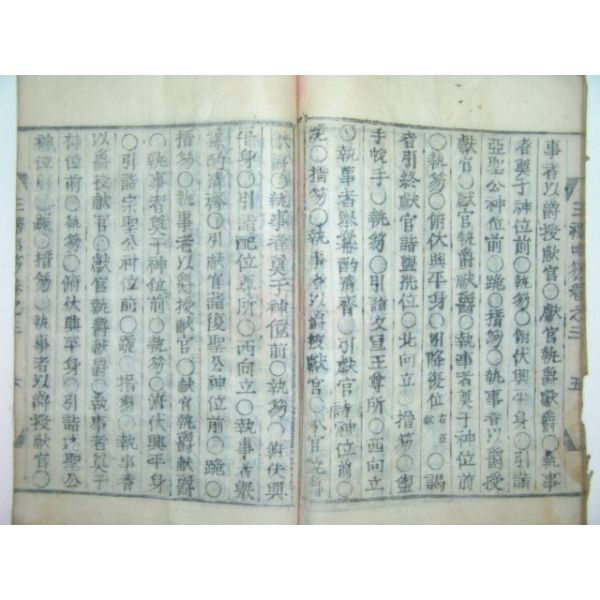 事者以爵授獻官○獻官執爵獻爵○執事
者奠于神位前○執笏○俯伏興平身○引詣
亞聖公神位前○跪○搢笏○執事者以爵授
獻官○獻官執爵獻爵○執事者奠于神位前
○執笏○俯伏興平身○引降復位○謁
者引終獻官詣盥洗位○北向立○搢笏○盥
手帨手○執笏○引詣文宣王尊所○西向立
○執事者舉冪酌清齊○引獻官詣神位前○
跪○搢笏○執事者以爵授獻官○獻官執爵
獻爵○執事者奠于神位前○執笏○俯伏興
平身○引詣配位尊所○西向立○執事者舉
冪酌清齊○引獻官詣復聖公神位前○跪○
搢笏○執事者以爵授獻官○獻官執爵獻爵
○執事者奠于神位前○執笏○俯伏興平身
○引詣宗聖公神位前○跪○搢笏○執事者
以爵授獻官○獻官執爵獻爵○執事者奠于
神位前○執笏○俯伏興平身○引詣述聖公
神位前○跪○搢笏○執事者以爵授獻官○